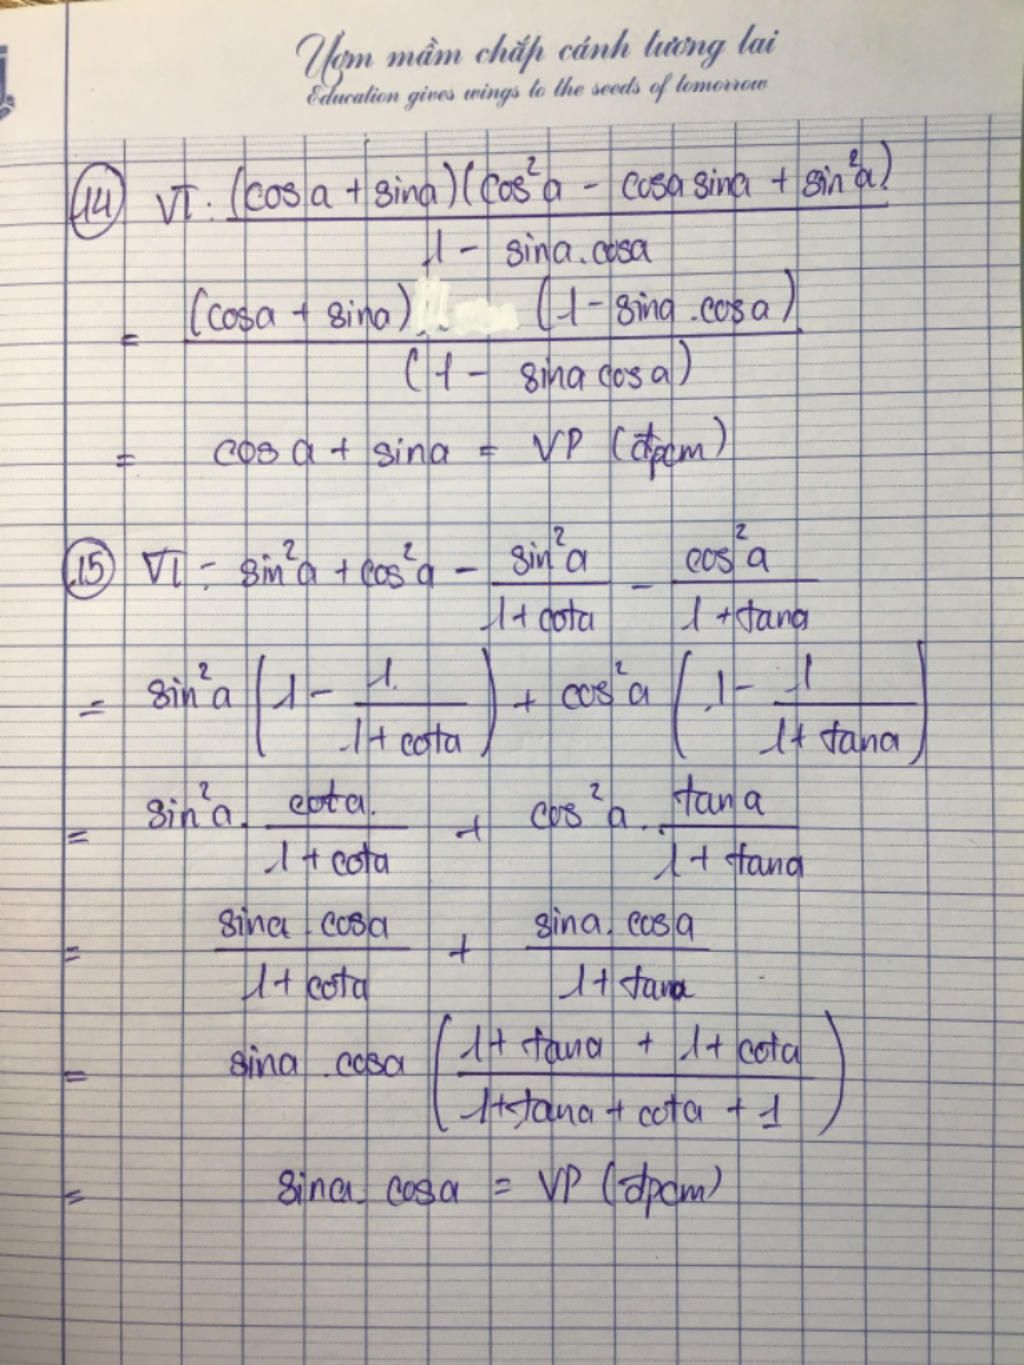 Ươm mầm chắp cánh tương lai
Education gives wings to the seeds of tomorrow
(14) VT: (cosa + sina)(cos²a - cosa sina + sin²a)
1 - sina.cosa
= (cosa + sina) (1 - sina.cosa)
(1 - sina cosa)
= cosa + sina = VP (đpcm)
(15) VT = sin²a + cos²a - sin²a / 1 + cota - cos²a / 1 + tana
= sin²a (1 - 1 / 1 + cota) + cos²a (1 - 1 / 1 + tana)
= sin²a. cota. / 1 + cota + cos²a. tana / 1 + tana
= sina.cosa / 1 + cota + sina.cosa / 1 + tana
= sina.cosa (1 + tana + 1 + cota / 1 + tana + cota + 1)
= sina.cosa = VP (đpcm)